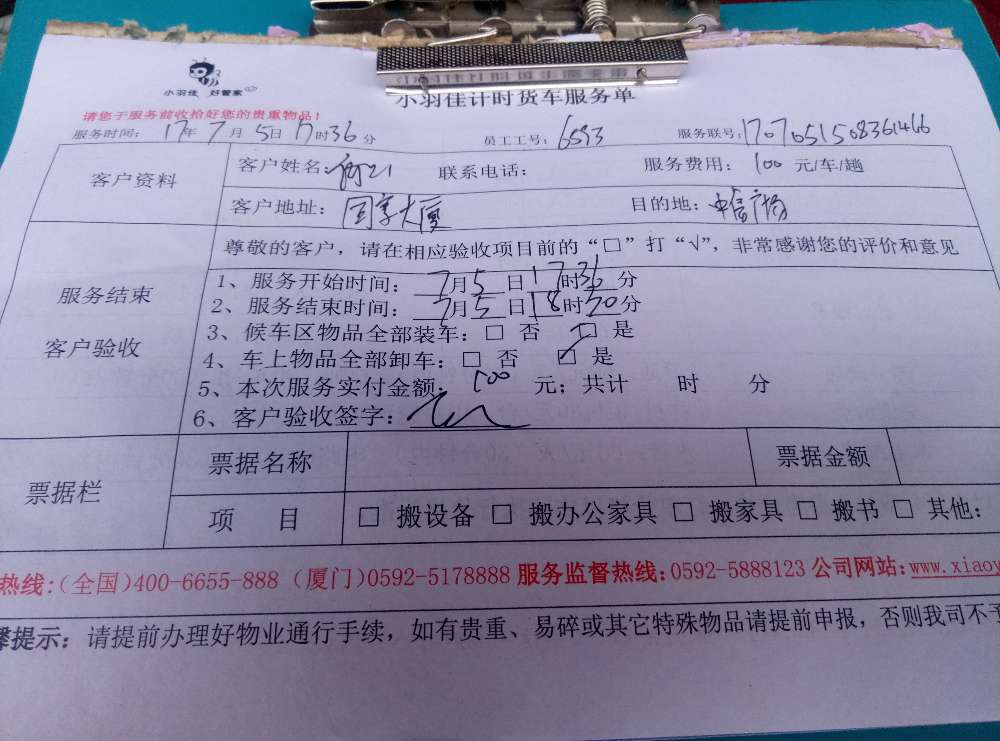 小羽佳 好管家
小羽佳计时货车服务单
请您于服务前收拾好您的贵重物品！
服务时间： 17年 7月 5日 17时36分 员工工号： 6593 服务联号： 1707051508361466
客户资料
客户姓名： 联系电话： 服务费用： 100 元/车/趟
客户地址： 国享大厦 目的地： 中信广场
服务结束
客户验收
尊敬的客户，请在相应验收项目前的“□”打“√”，非常感谢您的评价和意见
1、服务开始时间： 7月5日17时36分
2、服务结束时间： 7月5日18时20分
3、候车区物品全部装车：□ 否 □ 是
4、车上物品全部卸车：□ 否 □ 是
5、本次服务实付金额： 100 元；共计 时 分
6、客户验收签字：
票据栏
票据名称 票据金额
项 目 □ 搬设备 □ 搬办公家具 □ 搬家具 □ 搬书 □ 其他：
热线：（全国）400-6655-888 （厦门）0592-5178888 服务监督热线：0592-5888123 公司网站：www.xiaoy
馨提示：请提前办理好物业通行手续，如有贵重、易碎或其它特殊物品请提前申报，否则我司不予